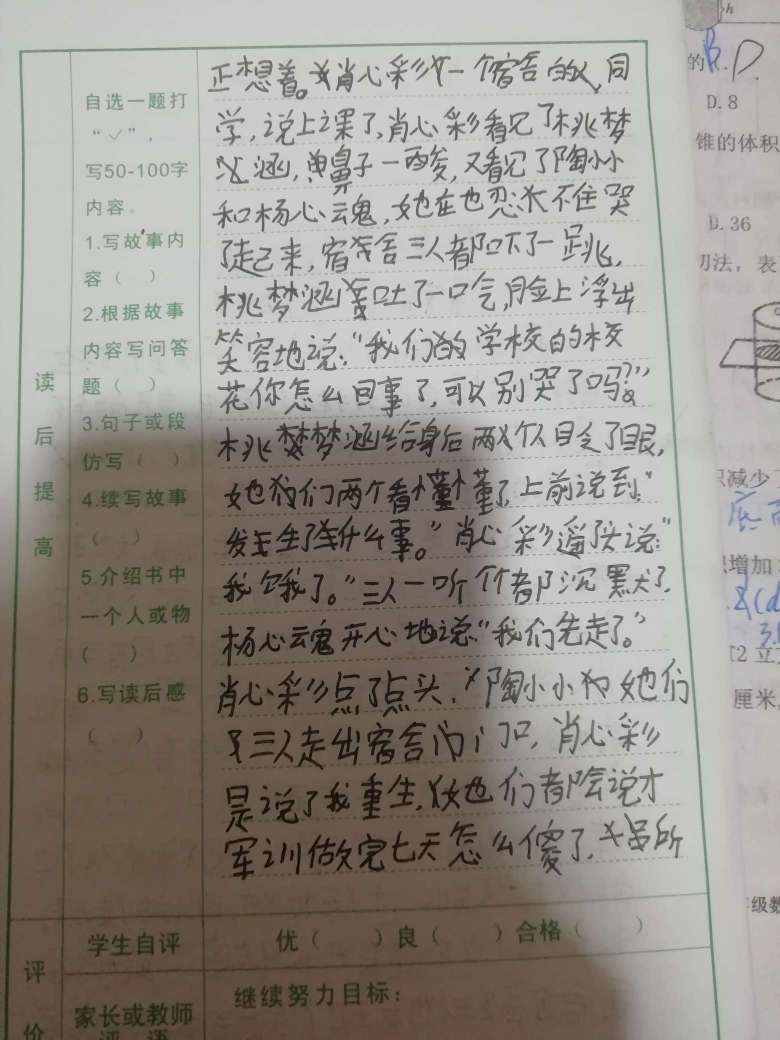 正想着。肖心彩一个宿舍的同
学,说上课了,肖心彩看见了桃梦
涵,鼻子一酸,又看见了陶小小
和杨心魂,她在也忍不住哭
了起来,宿舍三人都吓了一跳,
桃梦涵吐了一口气,脸上浮出
笑容地说:“我们的学校的校
花你怎么回事了,可以别哭了吗?”
桃梦涵给身后两个人目令了眼,
她们两个看懂了,上前说到“
发生了什么事。”肖心彩遥头说:“
我饿了。”三人一听个都沉默了,
杨心魂开心地说:“我们先走了。”
肖心彩点了点头,陶小小和她们
三人走出宿舍门口,肖心彩
是说了我重生,她们都会说才
军训做完七天怎么傻了,所
自选一题打
“√”,
写50-100字
内容。
1.写故事内
容( )
2.根据故事
内容写问答
题( )
3.句子或段
仿写( )
4.续写故事
( )
5.介绍书中
一个人或物
( )
6.写读后感
( )
读
后
提
高
学生自评
优( )良( )合格( )
评
价
家长或教师
评 语
继续努力目标:
的B.D.
D.8
锥的体积
D.36
切法,表
积减少了
积增加
厘米,
年级数